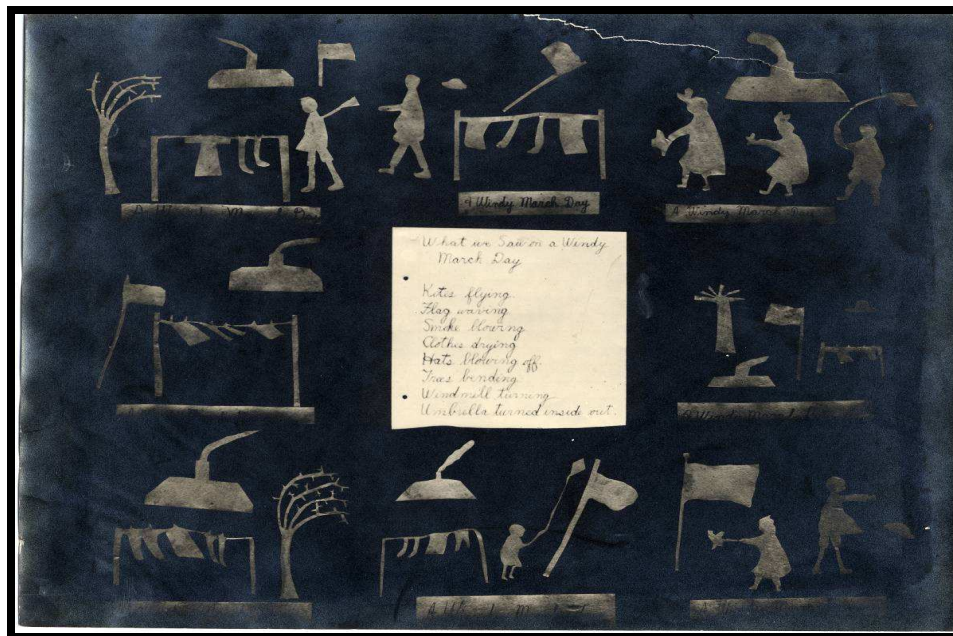 A Windy March Day
A Windy March Day
A Windy March Day
What we Saw on a Windy
March Day
Kites flying.
Flag waving
Smoke blowing
Clothes drying
Hats blowing off.
Trees bending
Windmill turning
Umbrella turned inside out.
A Windy March Day
A
A